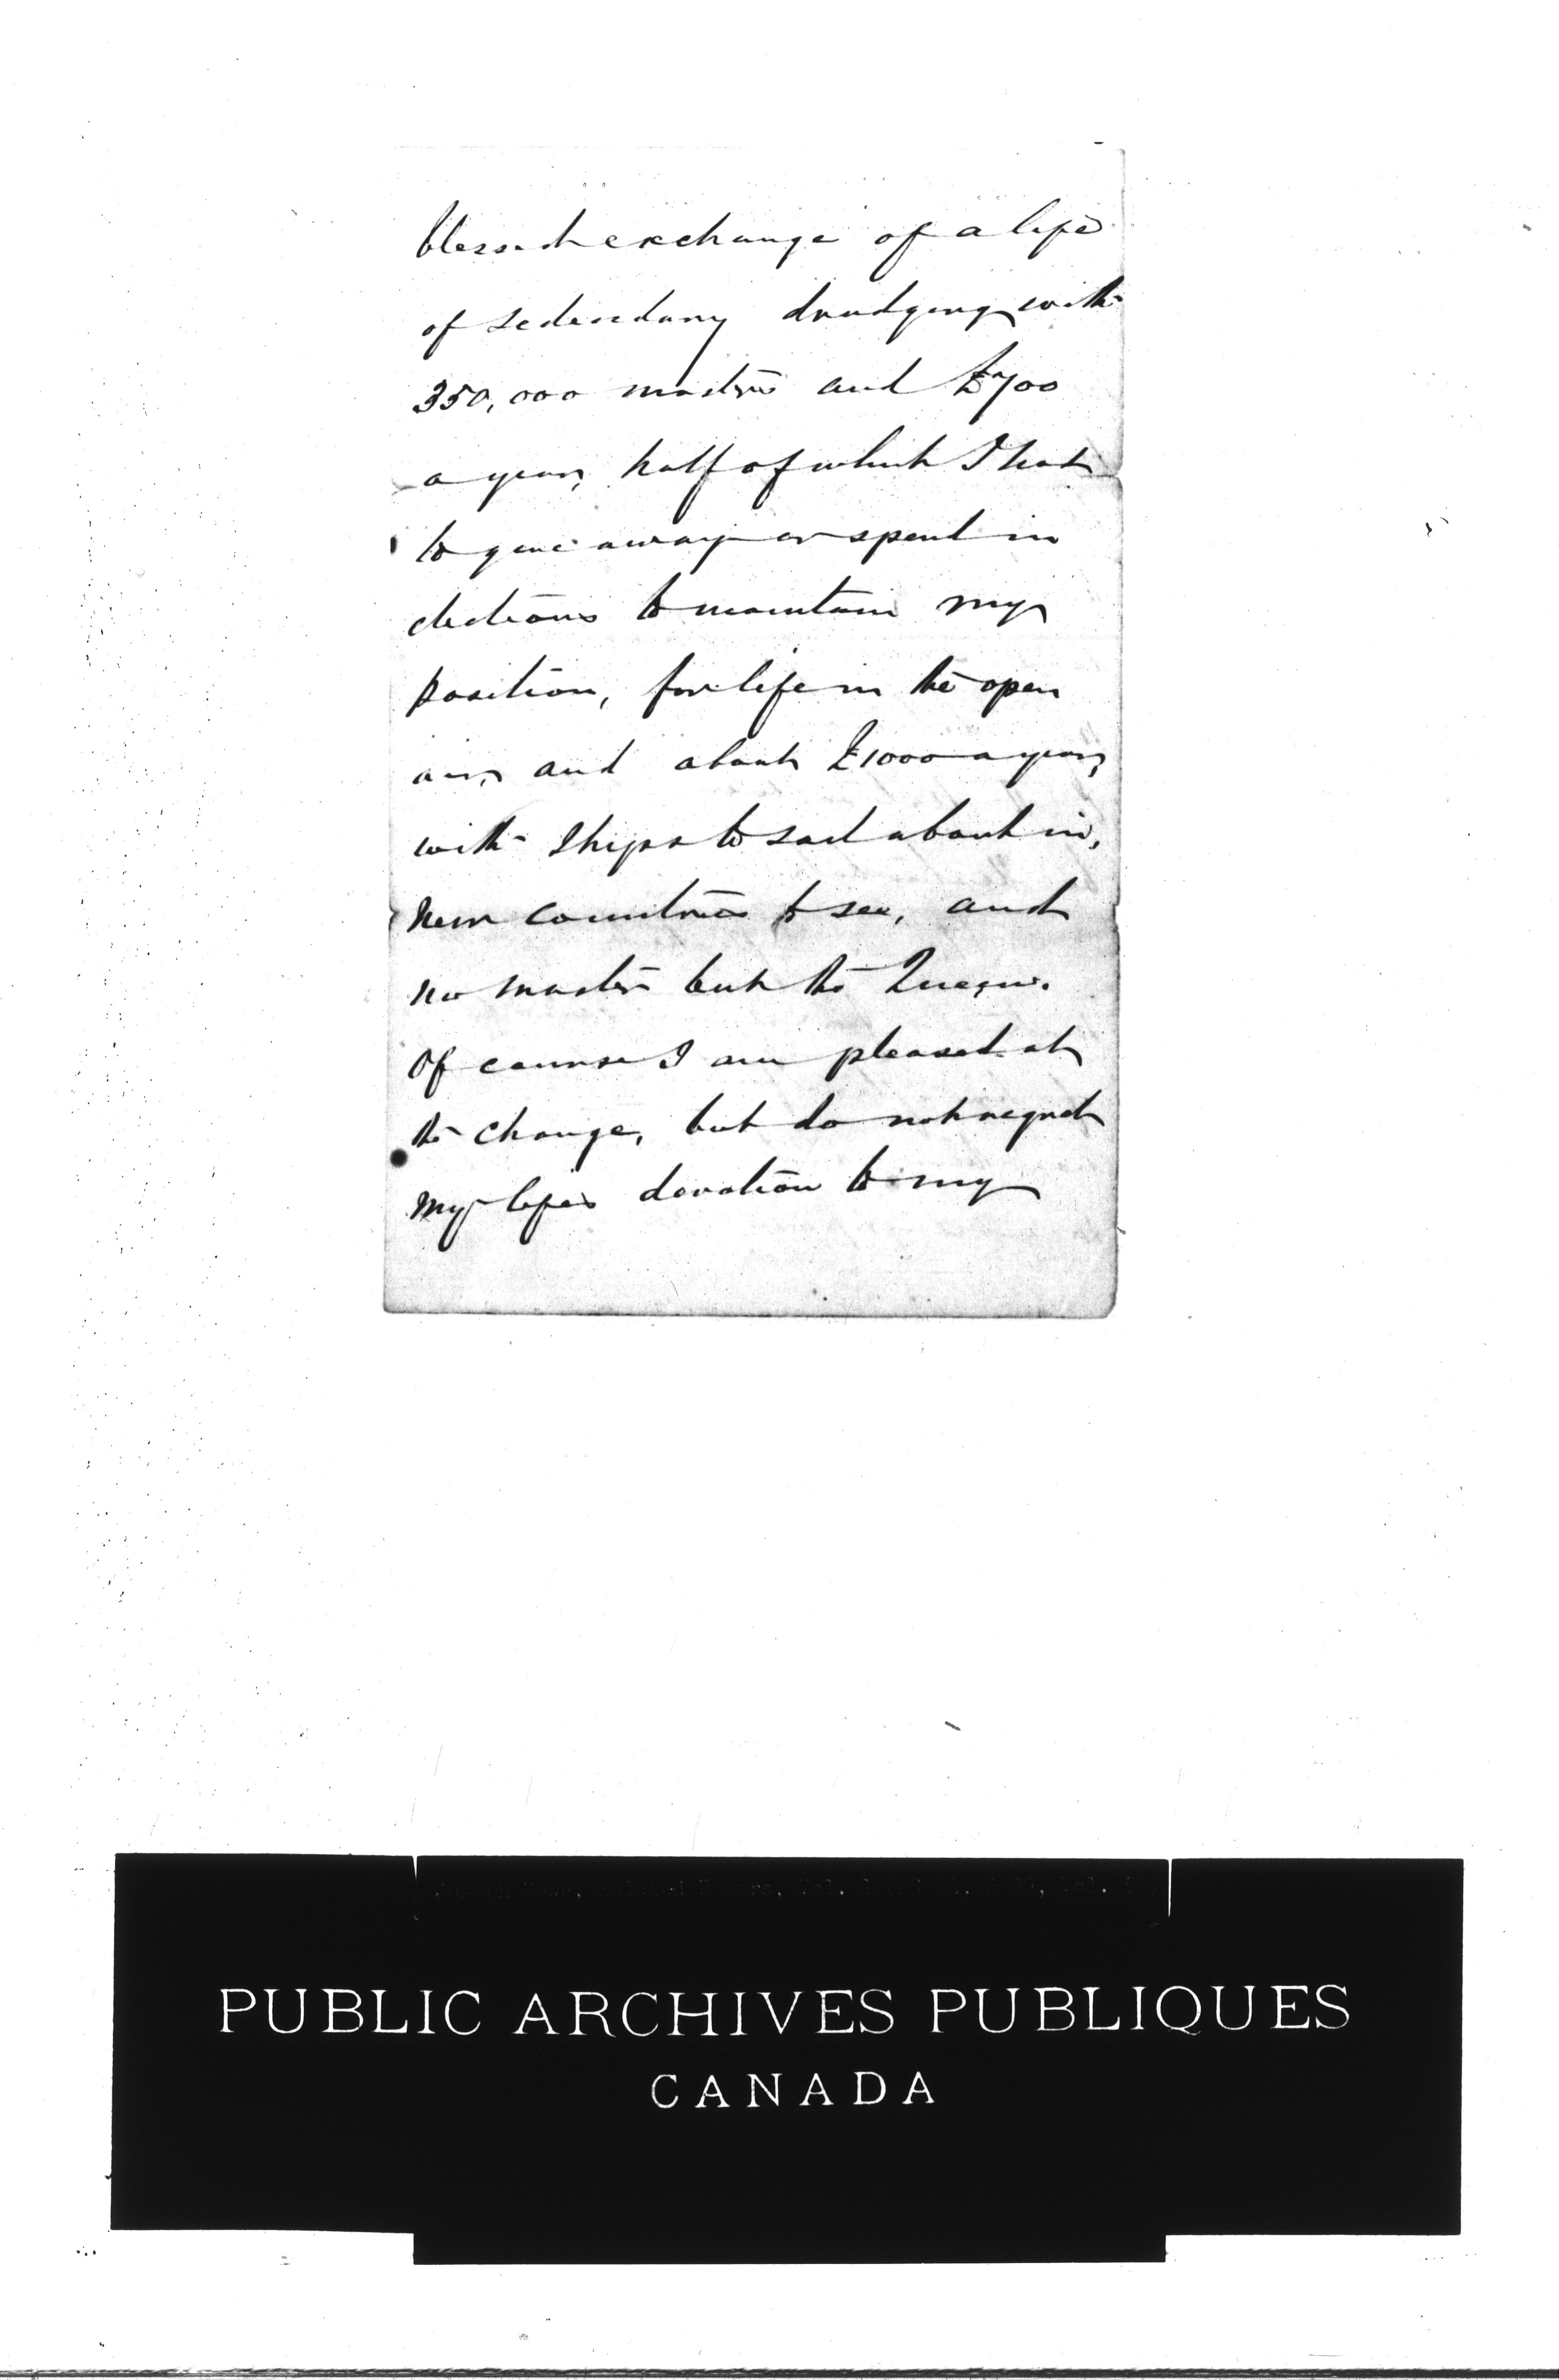 blessed exchange of a life
of sedendary drudgery with
350,000 masters and £700
a year, half of which I had
to give away or spend in
elections to maintain my
position, for life in the open
air, and about £1000 a year,
with ships to sail about in,
new countries to see, and
no master but the Queen.
Of course I am pleased at
the change, but do not regret
my life's devotion to my
Joseph Howe, Vol. Vol.
PUBLIC ARCHIVES PUBLIQUES
CANADA